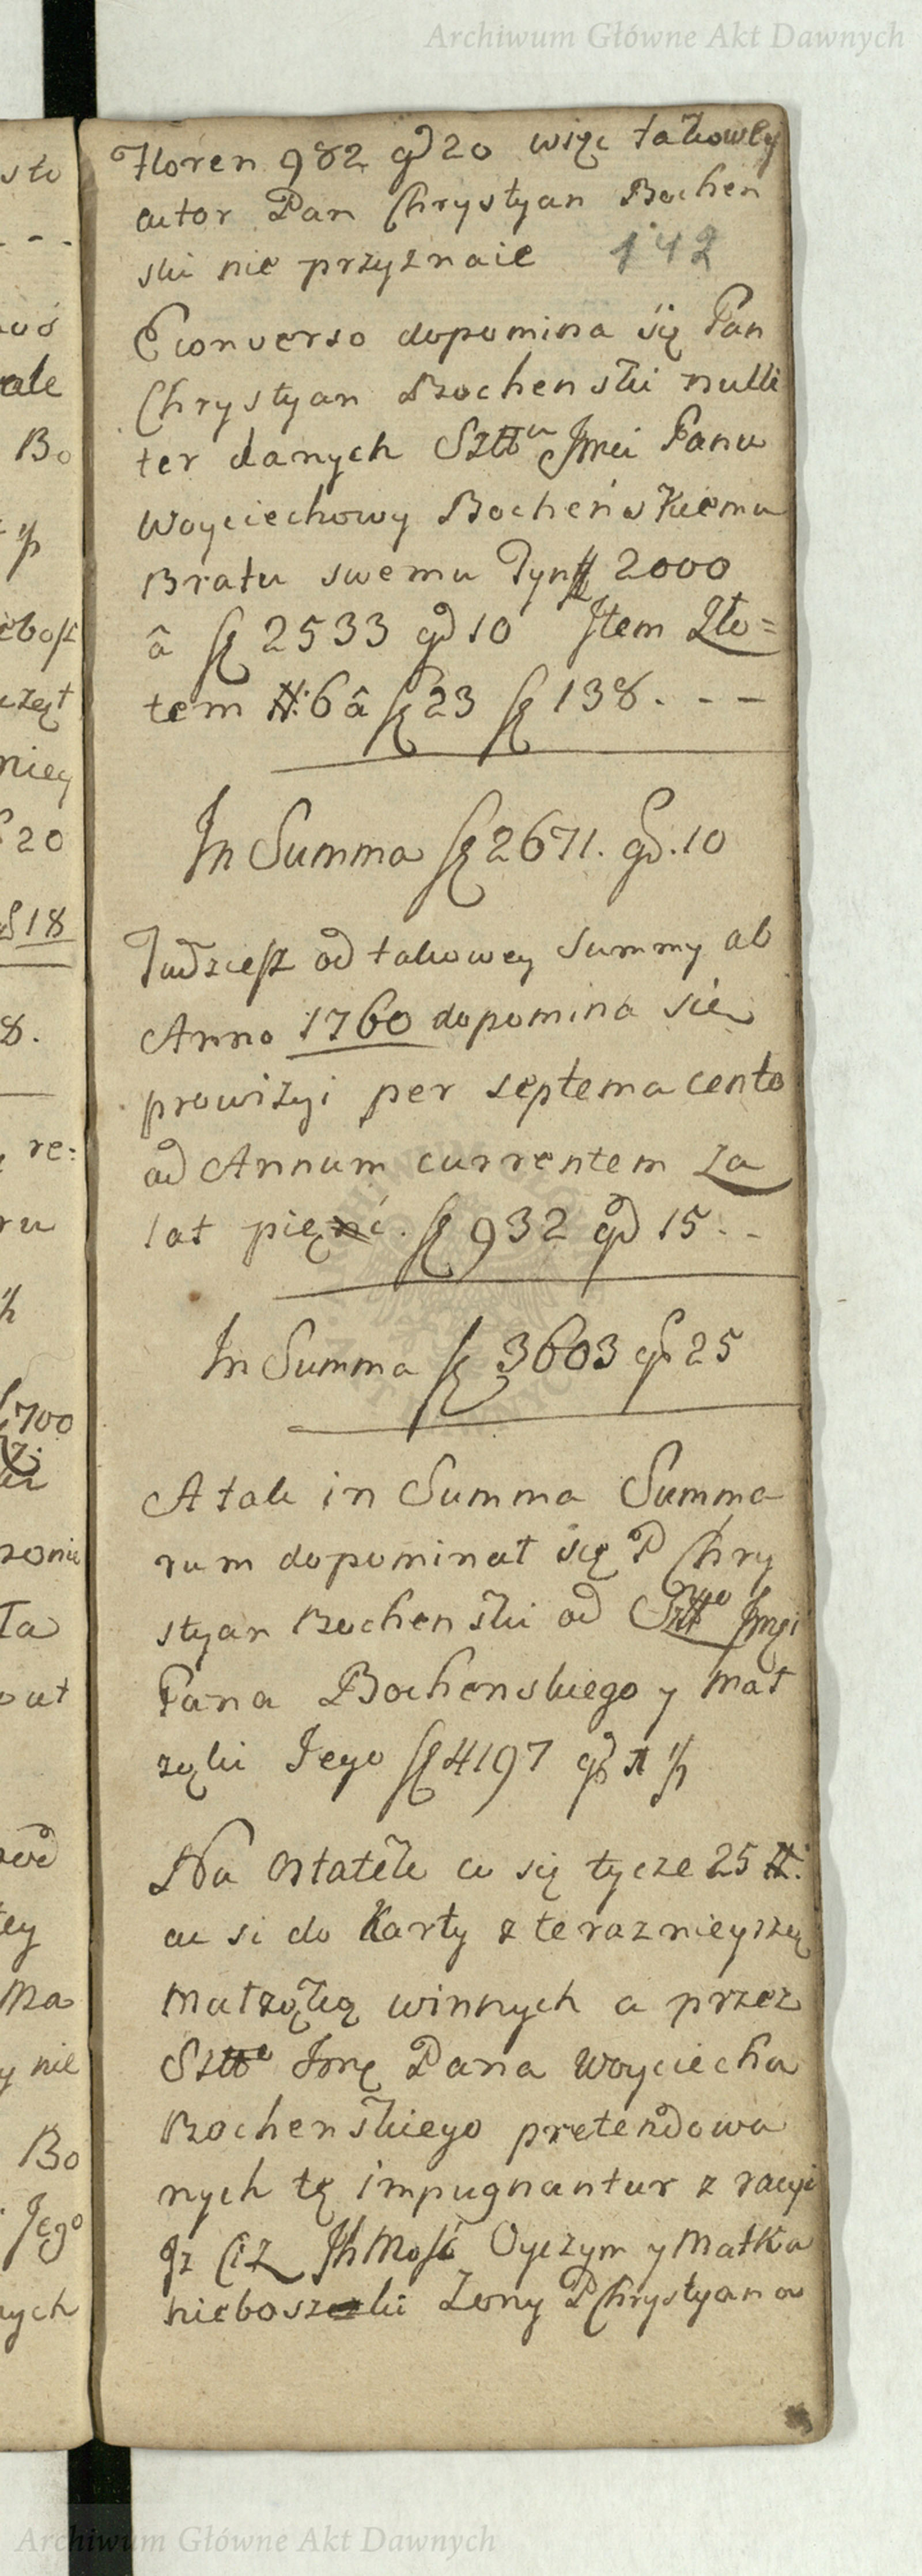 Archiwum Główne Akt Dawnych
Floren 982 gd 20 więc takowey
autor Pan Chrystyan Bochen
ski nie przyznaie 142
E converso dopomina się Pan
Chrystyan Bochenski nulli
ter danych Sztt Jmci Panu
Woyciechowy Bocheńskiemu
Bratu swemu Tynff 2000
â fl 2533 gd 10 Item Zło=
tem #: 6 â fl 23 fl 138. - - -
In Summa fl 2671. gd. 10
Tudziesz od takowey Summy ab
Anno 1760 dopomina sie
prowizyi per septema cento
ad Annum currentem za
lat pięć. fl 932 gd 15. - -
In Summa fl 3603 gd 25
A tak in Summa Summa
rum dopominat się P Chry
styan Bochenski od Jmci
Pana Bochenskiego y Mał
ząki Jego fl 4197 gd
Na ostatek co się tycze 25 #:
co si do Karty z teraznieyszą
Małząką winnych a przez
Sztte Jmę Pana Woyciecha
Bochenskiego pretendowa
nych tę impugnantur z racyi
Jz Ciz JhMość Oyczym y Matka
nieboszki Zony P Chrystyana
sto
- - -
ale
Bo
20
18
8.
re:
ru
700
Ta
Ma
y nie
Bo
Jego
nych
Archiwum Główne Akt Dawnych